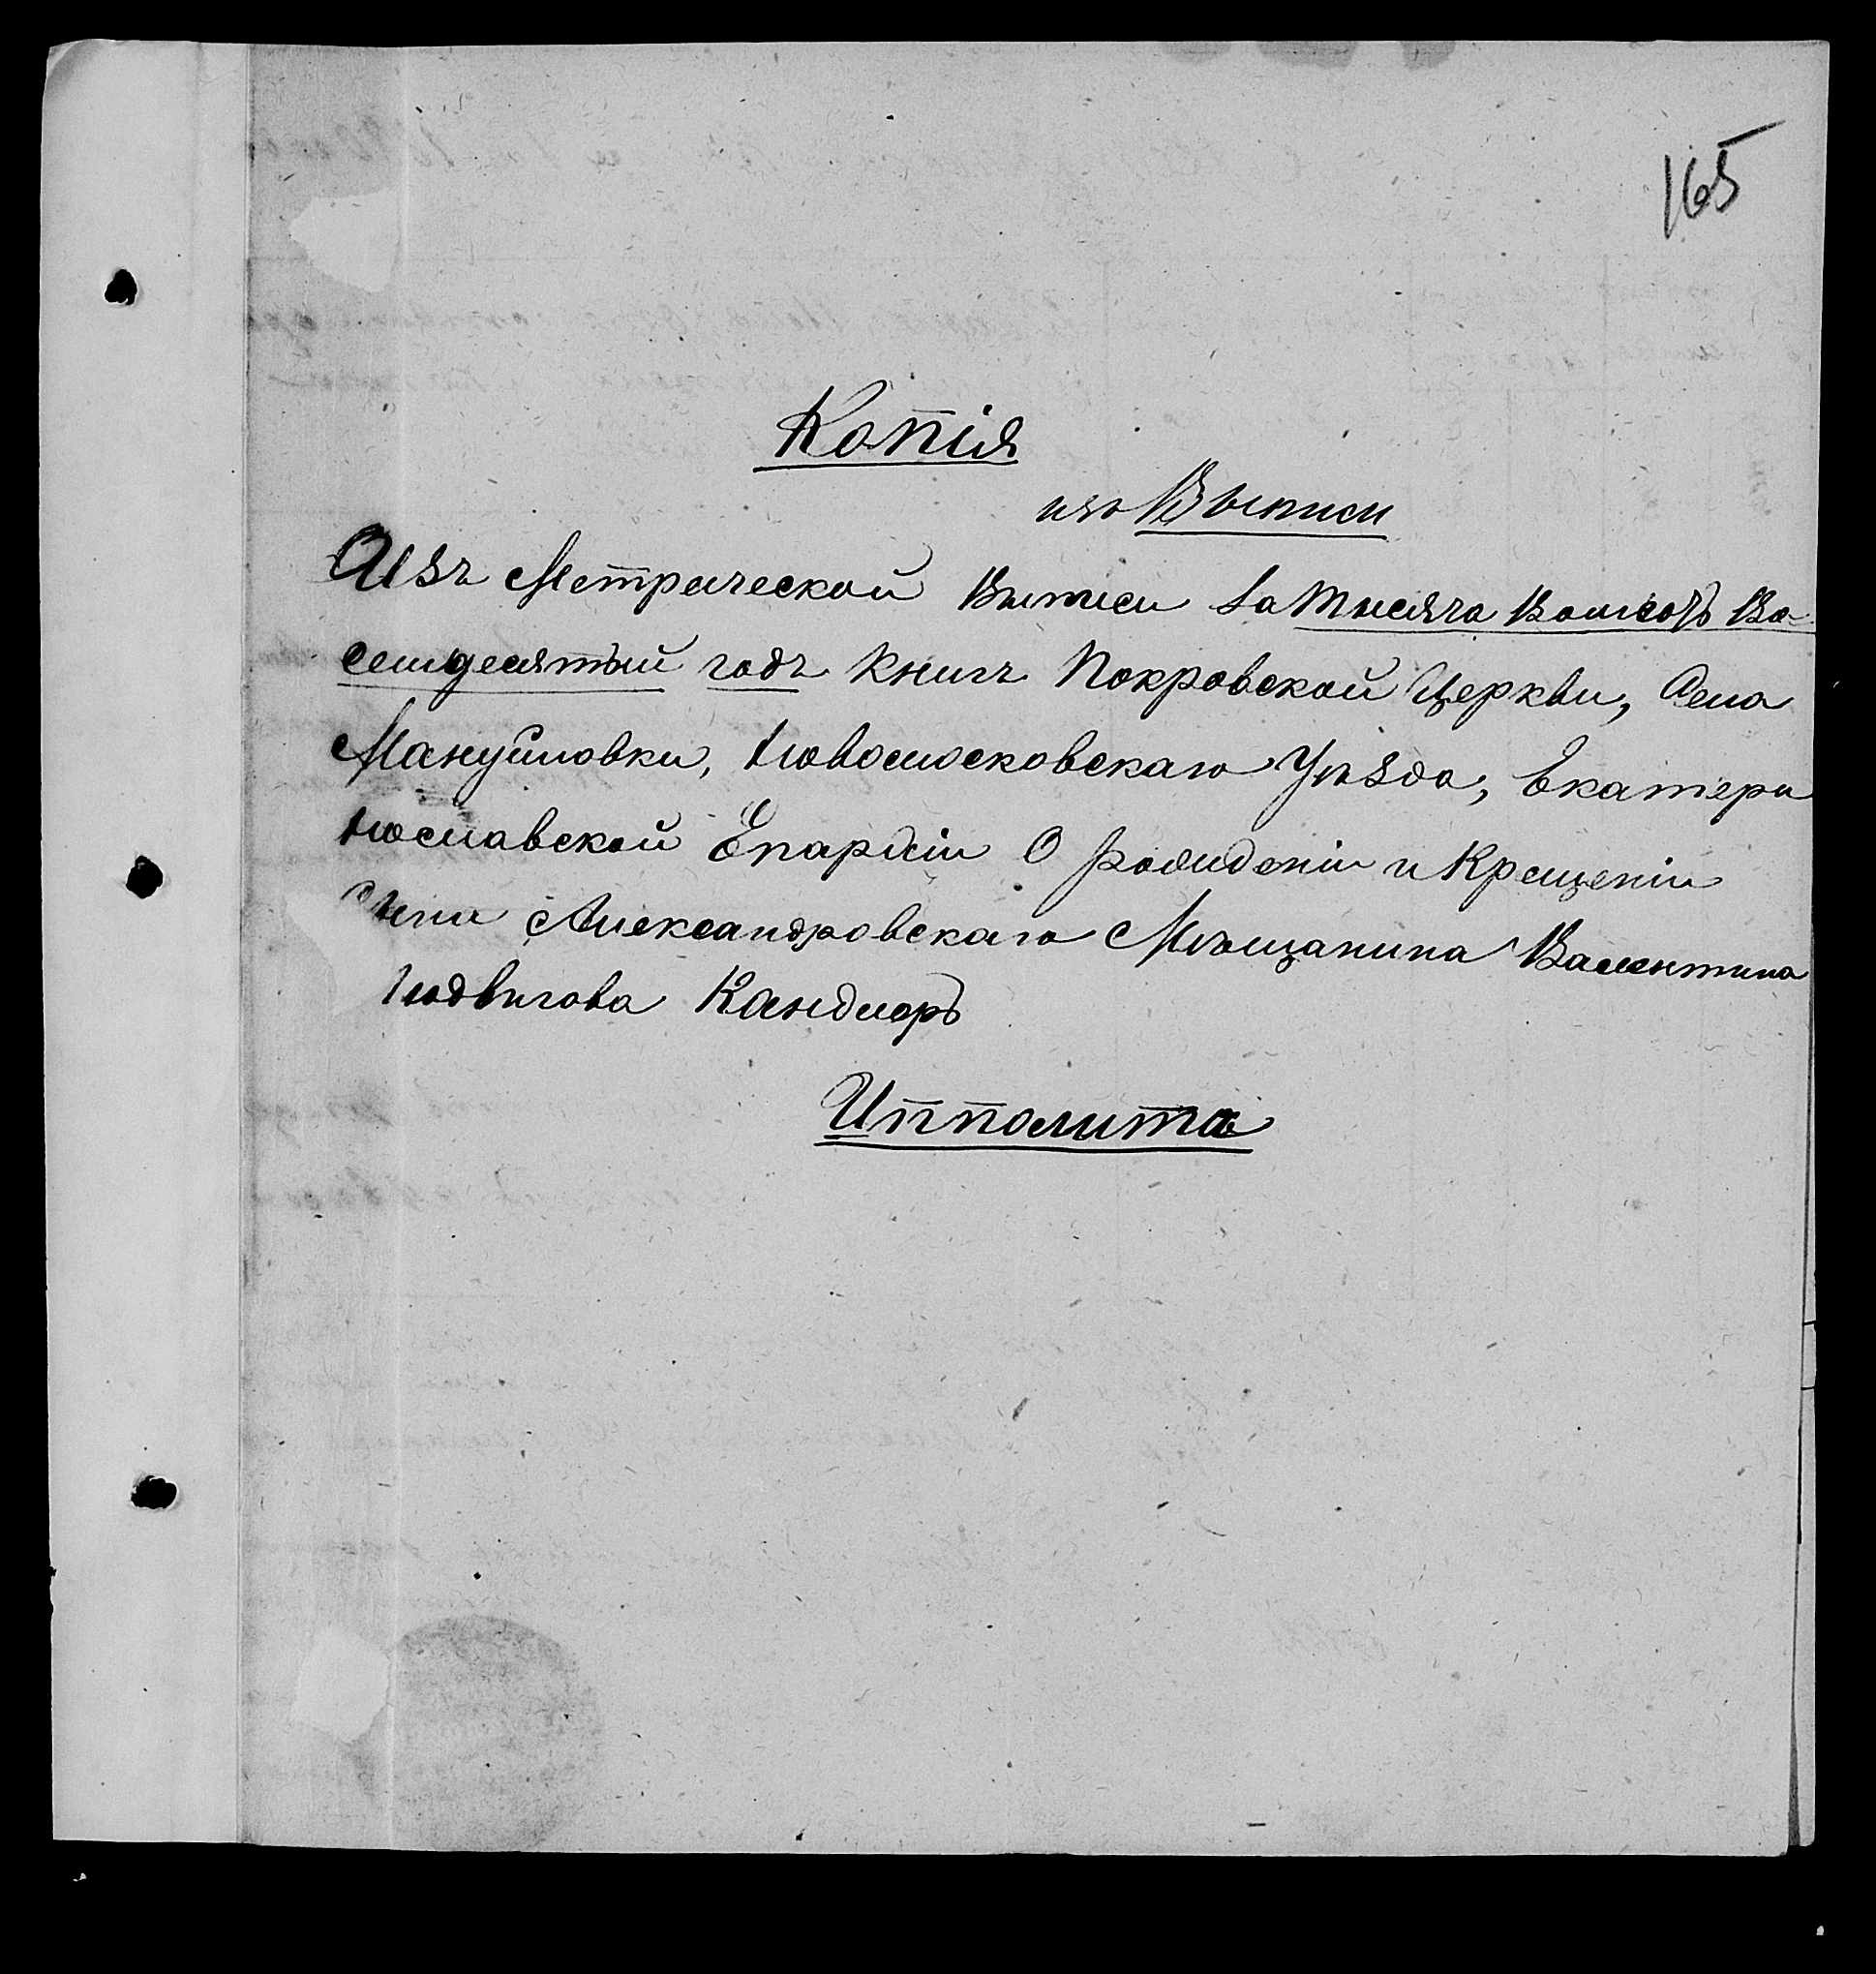 165
Копія
изъ Выписи
Изъ Метрической Выписи за тысяча Восемсотъ Во-
семдесятый годъ книгъ Покровской Церкви, Села
Мануйловки, Новомосковскаго Уѣзда, Екатери
нославской Епархіи О рождении и Крещеніи
сына Александровскаго Мѣщанина Валентина
Людвигова Кандлеръ
Ипполита